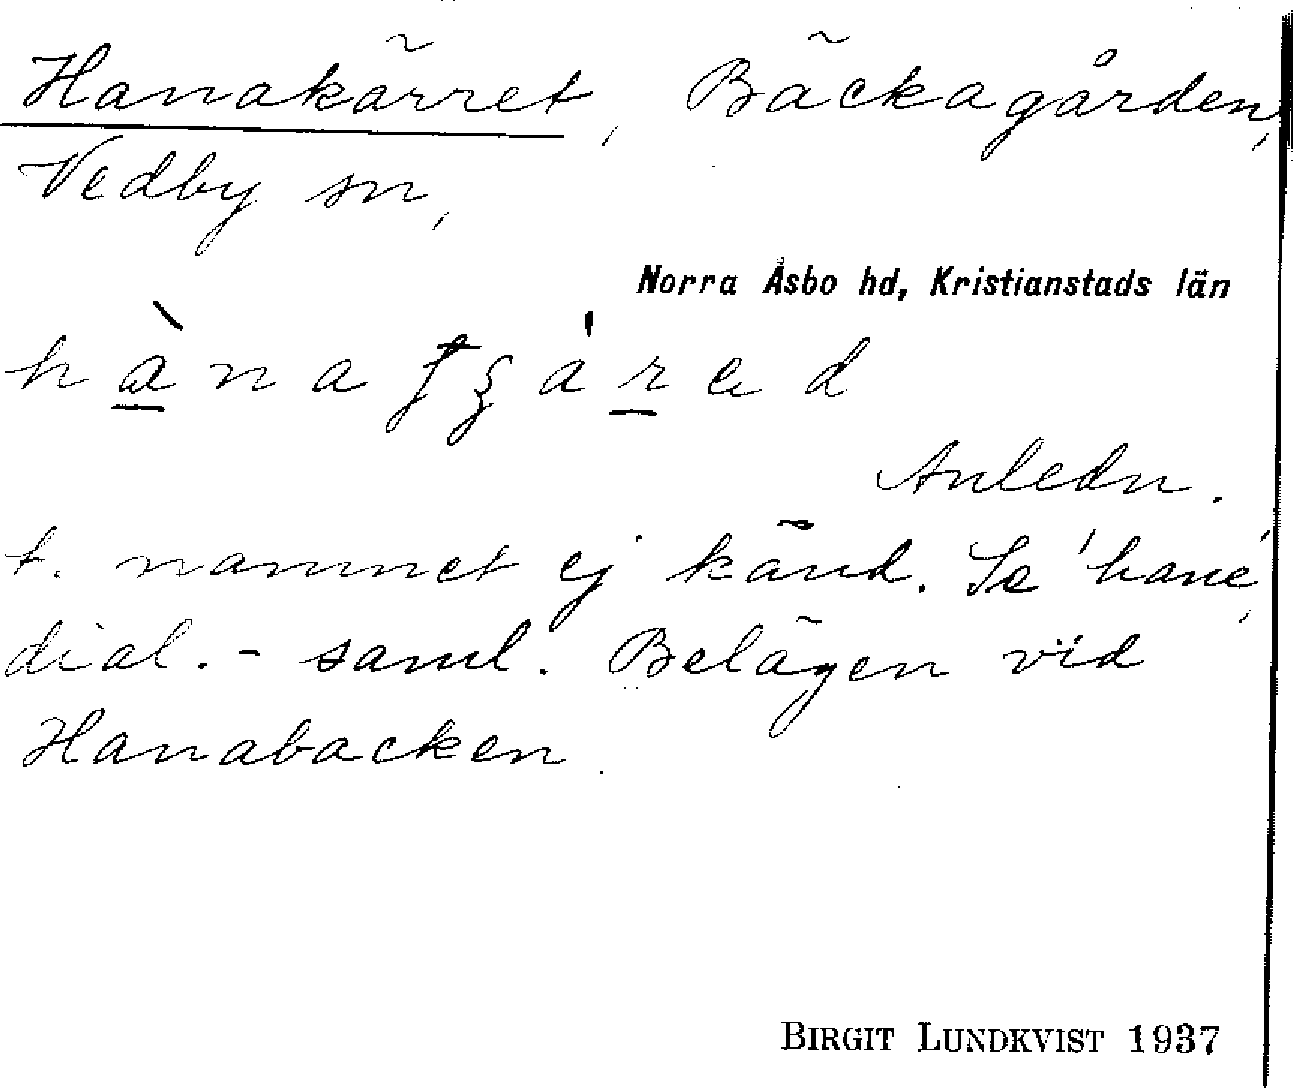 Hanakärret, Bäckagården,
Vedby sn,
Norra Åsbo hd, Kristianstads län
Anledn.
t. namnet ej känd. Se 'hane',
dial.- saml. Belägen vid
Hanabacken.
BIRGIT LUNDKVIST 1937